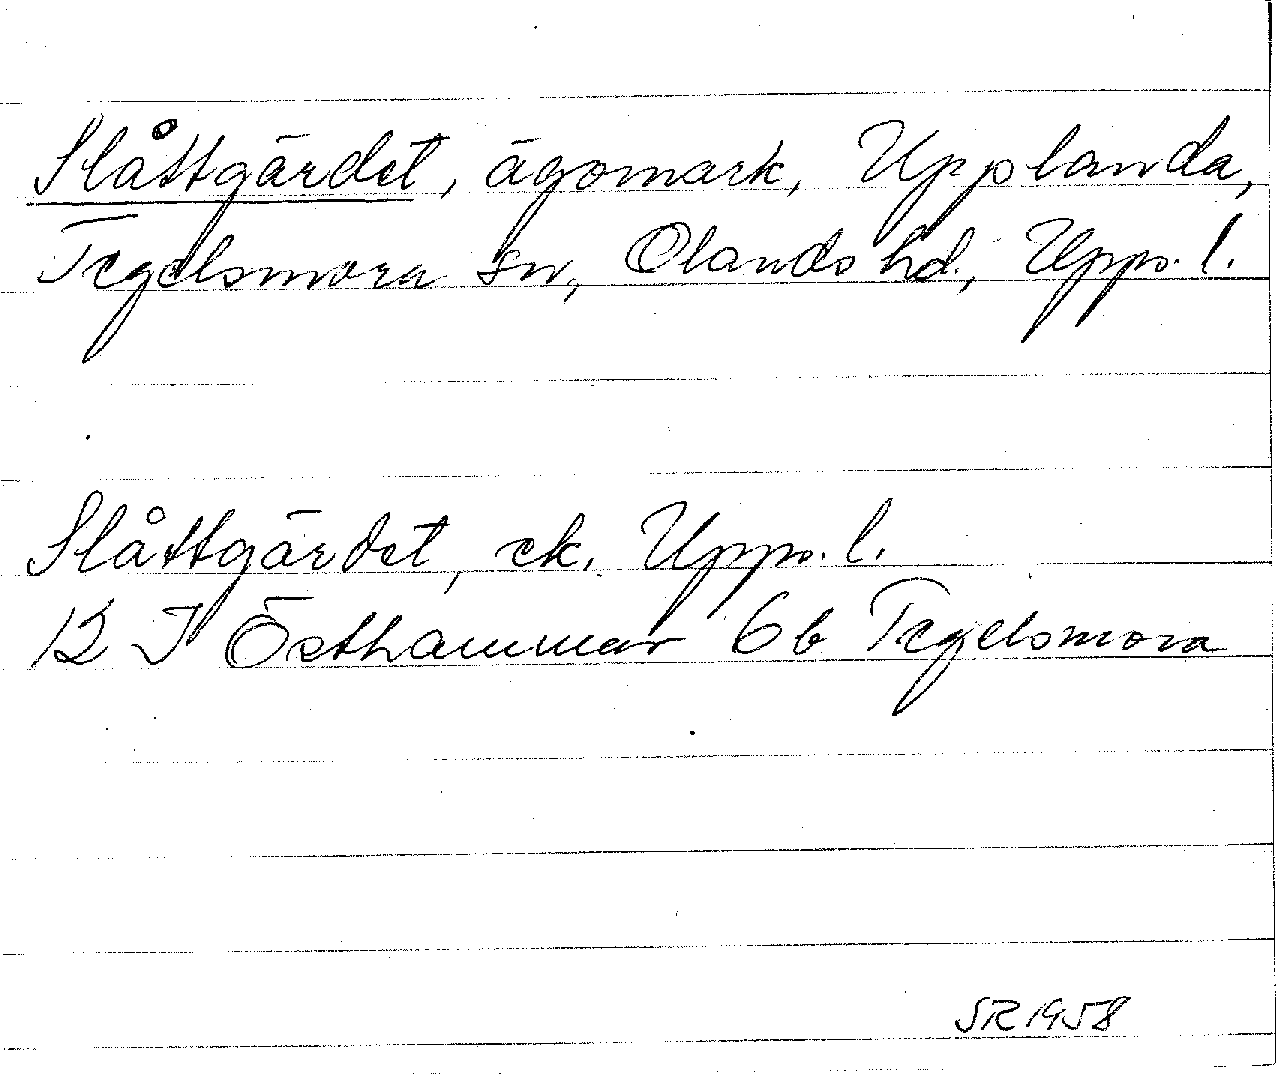 Slåttgärdet, ägomark, Upplanda,
Tegelsmora sn, Olands hd., Upps. l.
Slåttgärdet, ek. Upps. l.
12 I Östhammar 6b Tegelsmora
SR 1958